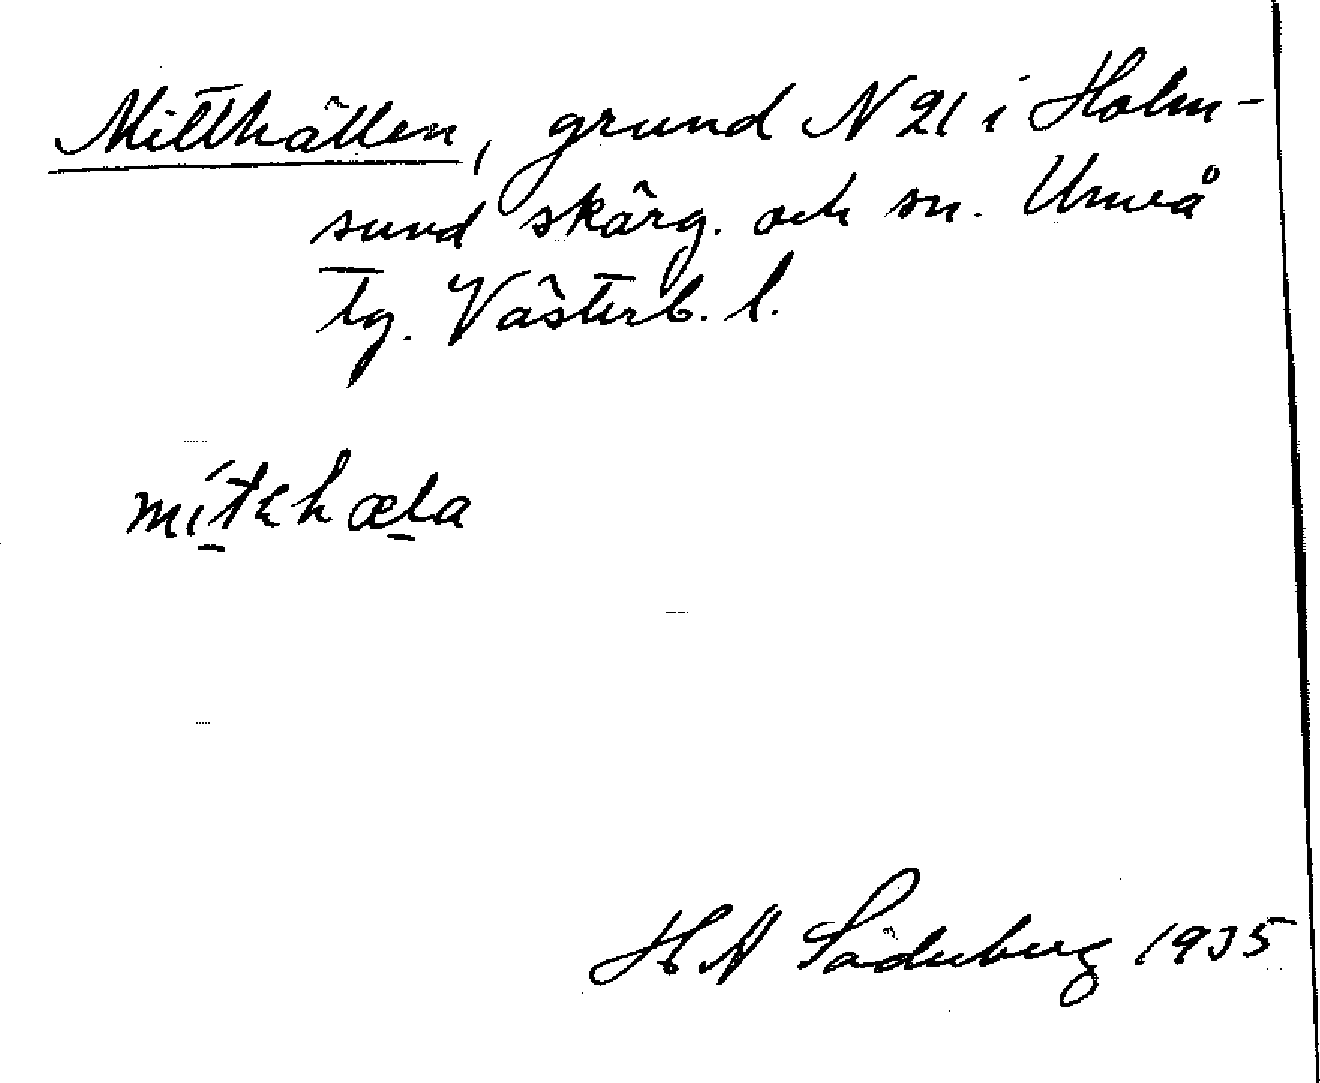 Mitthällen, grund N 21 i Holm-
sund skärg. och sn. Umeå
tg. Västerb. l.
H N Söderberg 1935